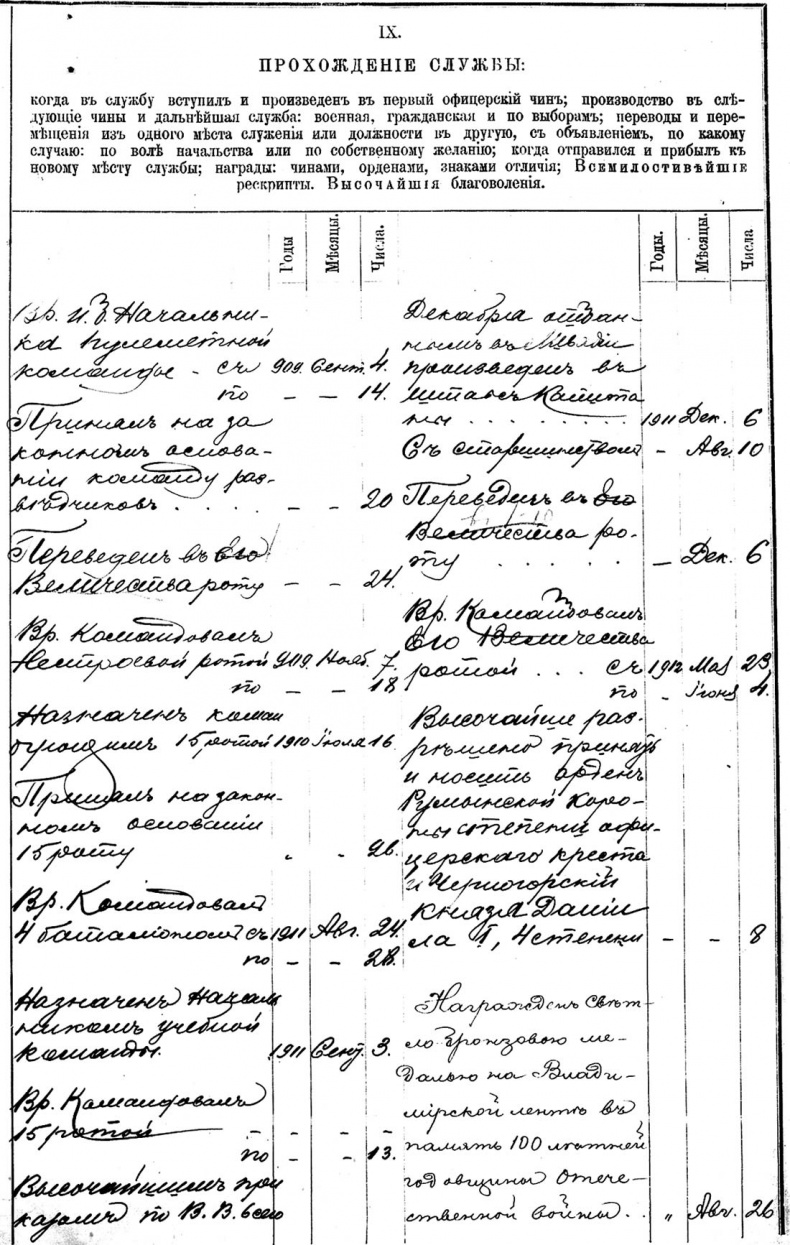 IX.
ПРОХОЖДЕНІЕ СЛУЖБЫ:
когда въ службу вступилъ и произведенъ въ первый офицерскій чинъ; производство въ слѣ-
дующіе чины и дальнѣйшая служба: военная, гражданская и по выборамъ; переводы и пере-
мѣщенія изъ одного мѣста служенія или должности въ другую, съ объявленіемъ, по какому
случаю: по волѣ начальства или по собственному желанію; когда отправился и прибылъ къ
новому мѣсту службы; награды: чинами, орденами, знаками отличія; Всемилостивѣйшіе
рескрипты. Высочайшія благоволенія.
Годы
Мѣсяцы.
Числа.
Вр. И. д. Начальни-
ка пулеметной
команды - съ 909. Сент. 4.
по - - 14.
Принялъ на за
конномъ основа-
ніи команду раз-
вѣдчиковъ . . . . - - 20
Переведенъ въ Его
Величества роту - - 24.
Вр. Командовалъ
Нестроевой ротой 909. Нояб. 7.
по - - 18.
Назначенъ коман
дующимъ 15 ротой 1910 Іюля 16.
Принялъ на закон-
номъ основаніи
15 роту „ - 26.
Вр. Командовалъ
4 баталіономъ съ 1911 Авг. 24.
по - - 28.
Назначенъ Началь
никомъ учебной
команды. 1911 Сент. 3.
Вр. Командовалъ
15 ротой - - -
по - - 13.
Высочайшимъ при
казомъ по В. В. 6 сего
Годы.
Мѣсяцы.
Числа
Декабря
произведенъ въ
Штабсъ Капита
ны . . . . . . . . . 1911 Дек. 6
Съ старшинствомъ - Авг. 10
Переведенъ въ Его
Величества ро-
ту . . . . . - Дек. 6
Вр. Командовалъ
Его Величества
ротой . . . съ 1912 Мая 23
по „ Іюня 4.
Высочайше раз-
рѣшено принять
и носить орденъ
Румынской Коро-
ны степени офи-
церскаго креста
и Черногорскій
Князя Даніи
ла I, 4 степени - - 8
Награжденъ свѣт-
ло бронзовою ме-
далью на Влади-
мірской лентѣ въ
память 100 лѣтней
годовщины Отече-
ственной войны . . „ Авг. 26